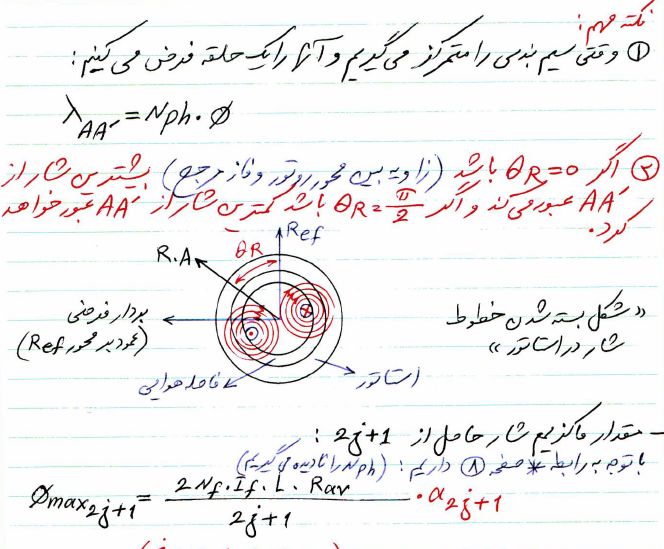 نکته مهم:
① وقتی سیم بندی را متمرکز می گیریم و آنها را یک حلقه فرض می کنیم:
λAA′ = Nph . Ø
② اگر θR=0 باشد (زاویه بین محور روتور و فاز مرجع) بیشترین شار از
AA′ عبور می کند و اگر θR=π/2 باشد کمترین شار از AA′ عبور خواهد
کرد.
Ref
θR
R.A
بردار فرضی
(عمود بر محور Ref)
«شکل بسته شدن خطوط
شار در استاتور»
فاصله هوایی
استاتور
- مقدار ماکزیمم شار حاصل از 2j+1 :
با توجه به رابطه * صفحه ⑧ داریم: (Nph را نادیده می گیریم)
Ømax2j+1 = 2Nf . If . L . Rav / 2j+1 . a2j+1